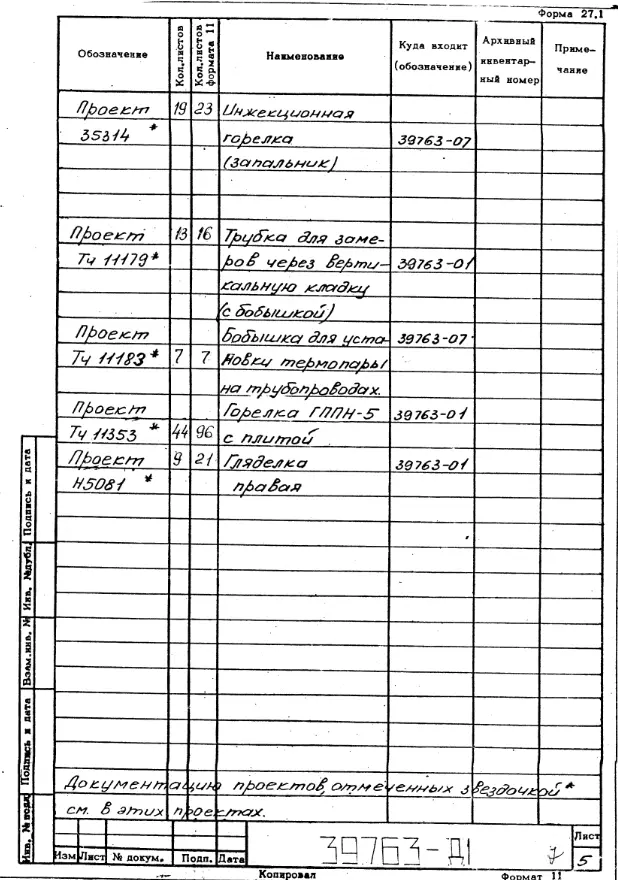 Форма 27.1
Обозначение Кол.листов Кол.листов формата 11 Наименование Куда входит (обозначение) Архивный инвентар-ный номер Приме-чание
Проект 19 23 Инжекционная
35314 * горелка 39763-07
(запальник)
Проект 13 16 Трубка для заме-
Тч 11179* ров через верти- 39763-01
кальную кладку
(с бобышкой)
Проект Бобышка для уста- 39763-07
Тч 11183 * 7 7 новки термопары
на трубопроводах.
Проект Горелка ГППН-5 39763-01
Тч 11353 * 44 96 с плитой
Проект 9 21 Гляделка 39763-01
Н5081 * правая
Документацию проектов, отмеченных звездочкой *
см. в этих проектах.
Инв. № подл Подпись и дата Взам.инв. № Инв. №дубл. Подпись и дата
39763-Д1
Лист
5
Изм Лист № докум. Подп. Дата
Копировал Формат 11